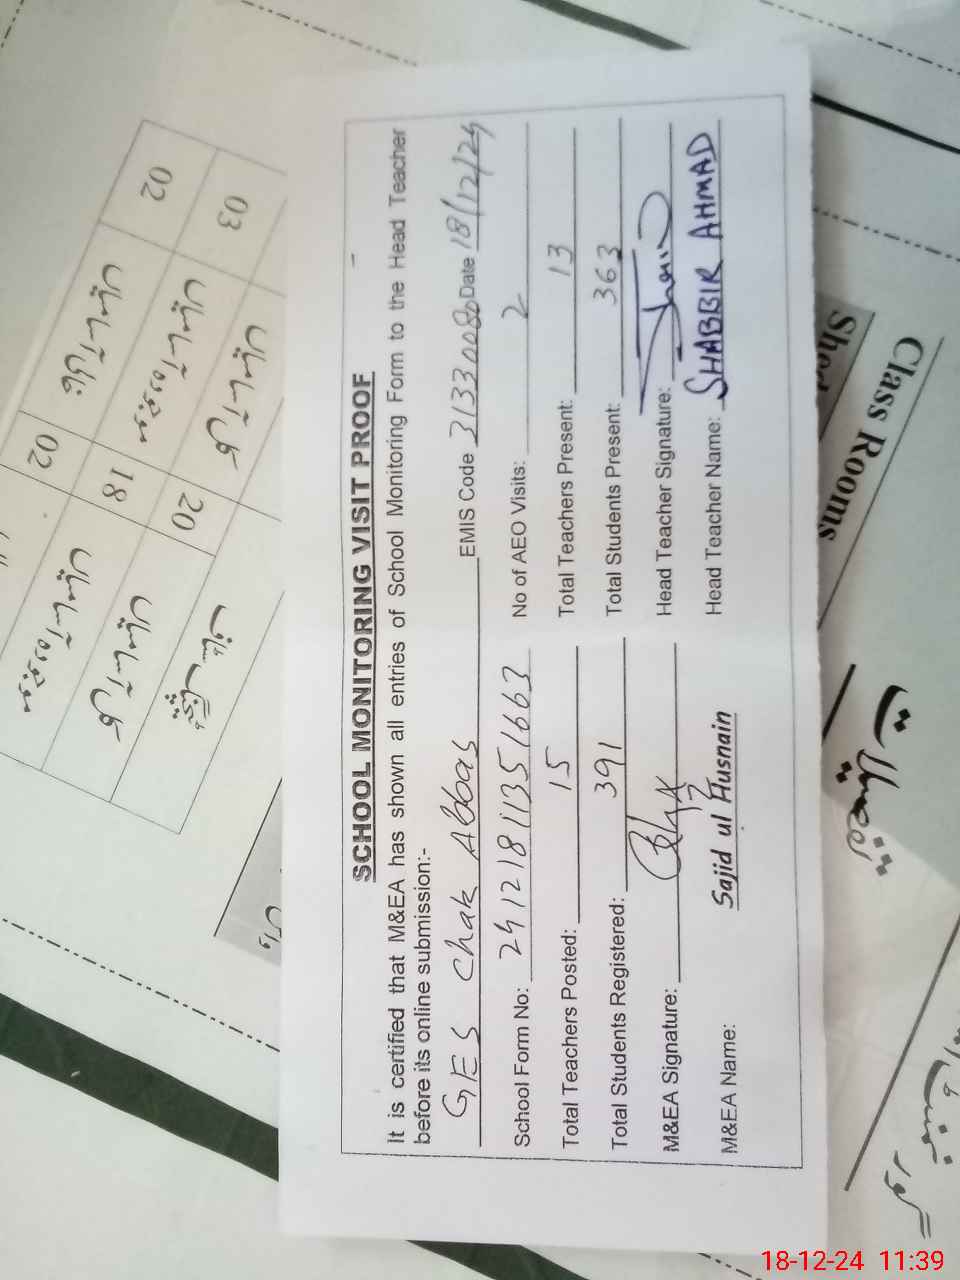 SCHOOL MONITORING VISIT PROOF
It is certified that M&EA has shown all entries of School Monitoring Form to the Head Teacher
before its online submission:-
GES Chak Abbas EMIS Code 31330080 Date 18/12/24
School Form No: 24121811351663 No of AEO Visits: 2
Total Teachers Posted: 15 Total Teachers Present: 13
Total Students Registered: 391 Total Students Present: 363
M&EA Signature: Head Teacher Signature:
M&EA Name: Sajid ul Husnain Head Teacher Name: SHABBIR AHMAD
Class Rooms
Shed
تفصیلات
ٹیچنگ سٹاف
کل آسامیاں 20 کل آسامیاں 03
موجودہ آسامیاں 18 موجودہ آسامیاں 02
02 خالی آسامیاں
18-12-24 11:39